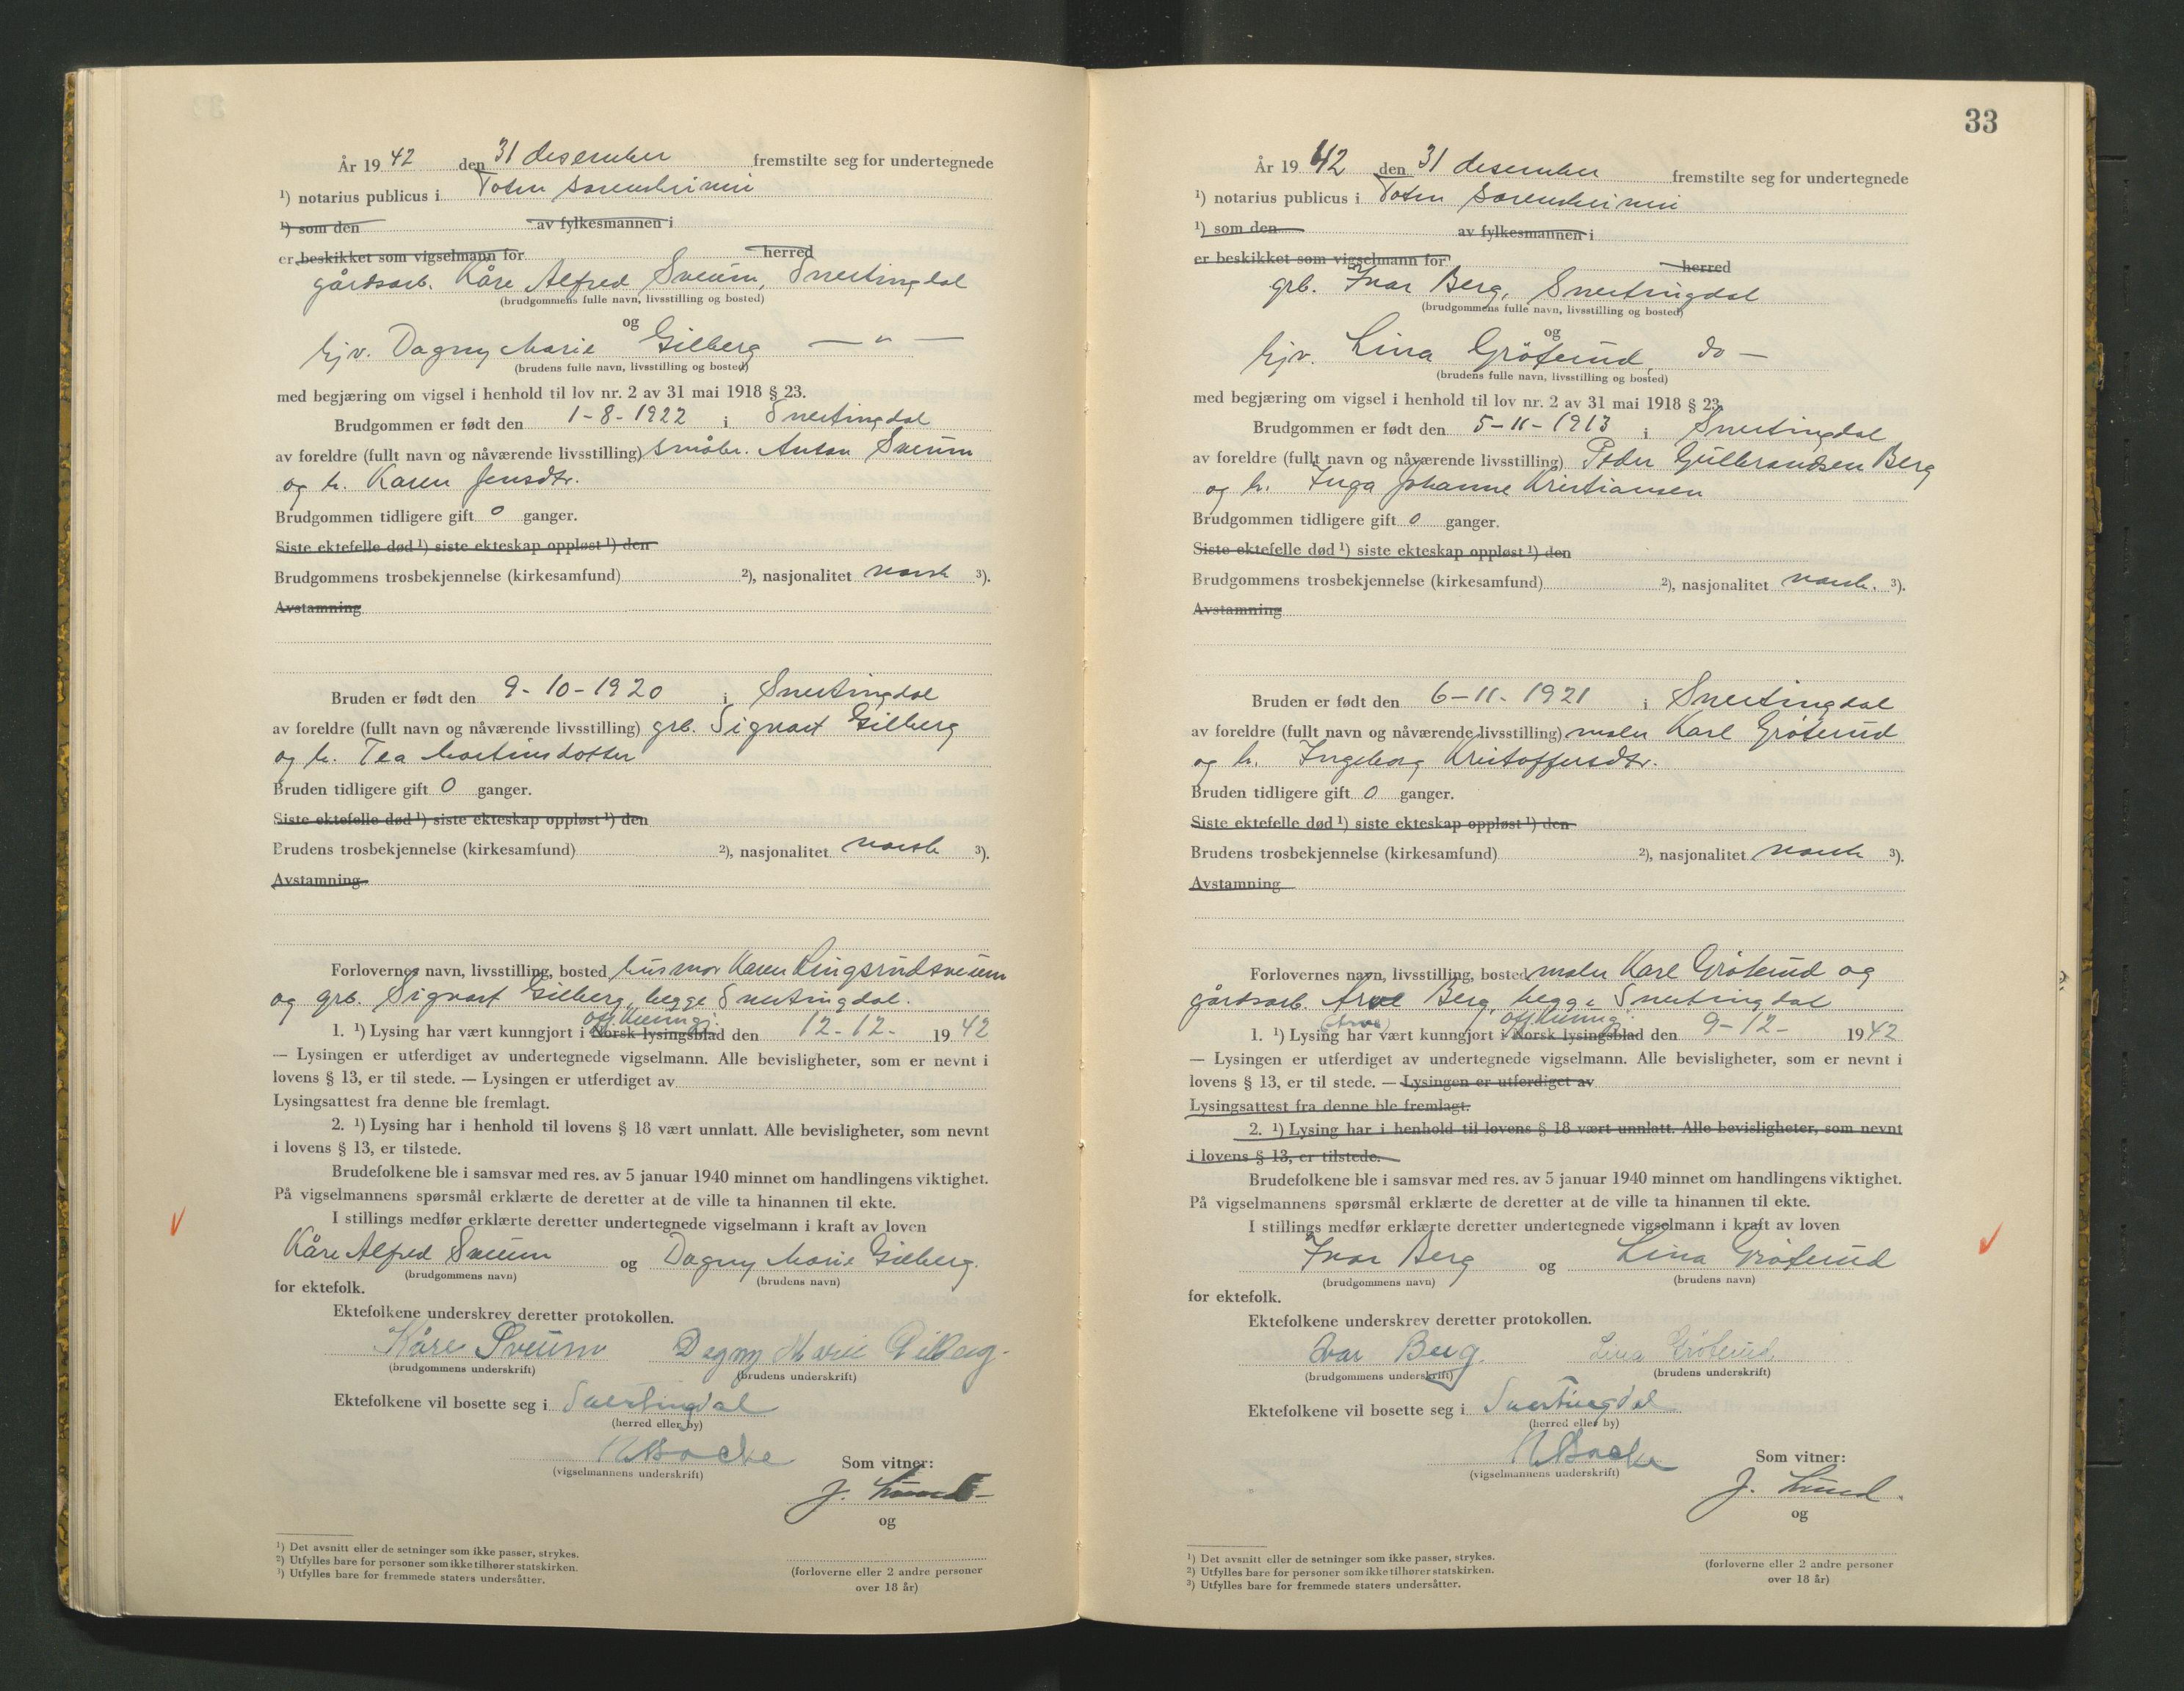 År 19 42 den 31 desember fremstilte seg for undertegnede
¹) notarius publicus i Toten sorenskriveri
¹) som den av fylkesmannen i
er beskikket som vigselmann for herred
gårdsarb. Kåre Alfred Sveum, Snertingdal
(brudgommens fulle navn, livsstilling og bosted)
og
hjv. Dagny Marie Gilberg — " —
(brudens fulle navn, livsstilling og bosted)
med begjæring om vigsel i henhold til lov nr. 2 av 31 mai 1918 § 23.
Brudgommen er født den 1-8-1922 i Snertingdal
av foreldre (fullt navn og nåværende livsstilling) småbr. Anton Sveum
og h. Karen Jensdtr.
Brudgommen tidligere gift 0 ganger.
Siste ektefelle død ¹) siste ekteskap oppløst ¹) den
Brudgommens trosbekjennelse (kirkesamfund) ²), nasjonalitet norsk ³).
Avstamning
Bruden er født den 9-10-1920 i Snertingdal
av foreldre (fullt navn og nåværende livsstilling) grb. Sigvart Gilberg
og h. Tea Martinsdotter
Bruden tidligere gift 0 ganger.
Siste ektefelle død ¹) siste ekteskap oppløst ¹) den
Brudens trosbekjennelse (kirkesamfund) ²), nasjonalitet norsk ³).
Avstamning
Forlovernes navn, livsstilling, bosted husmor Karen Lingsrudsveum
og grb. Sigvart Gilberg, begge Snertingdal.
off. kunngj.
1. ¹) Lysing har vært kunngjort i Norsk lysingsblad den 12-12- 19 42
— Lysingen er utferdiget av undertegnede vigselmann. Alle bevisligheter, som er nevnt i
lovens § 13, er til stede. — Lysingen er utferdiget av
Lysingsattest fra denne ble fremlagt.
2. ¹) Lysing har i henhold til lovens § 18 vært unnlatt. Alle bevisligheter, som nevnt
i lovens § 13, er tilstede.
Brudefolkene ble i samsvar med res. av 5 januar 1940 minnet om handlingens viktighet.
På vigselmannens spørsmål erklærte de deretter at de ville ta hinannen til ekte.
I stillings medfør erklærte deretter undertegnede vigselmann i kraft av loven
Kåre Alfred Sveum og Dagny Marie Gilberg.
(brudgommens navn) (brudens navn)
for ektefolk.
Ektefolkene underskrev deretter protokollen.
Kåre Sveum Dagny Marie Gilberg.
(brudgommens underskrift) (brudens underskrift)
Ektefolkene vil bosette seg i Snertingdal
(herred eller by)
(vigselmannens underskrift) Som vitner:
J. Lund
og
¹) Det avsnitt eller de setninger som ikke passer, strykes.
²) Utfylles bare for personer som ikke tilhører statskirken.
³) Utfylles bare for fremmede staters undersåtter.
(forloverne eller 2 andre personer
over 18 år)
33
År 19 42 den 31 desember fremstilte seg for undertegnede
¹) notarius publicus i Toten sorenskriveri
¹) som den av fylkesmannen i
er beskikket som vigselmann for herred
grb. Ivar Berg, Snertingdal
(brudgommens fulle navn, livsstilling og bosted)
og
hjv. Lina Gröterud, do —
(brudens fulle navn, livsstilling og bosted)
med begjæring om vigsel i henhold til lov nr. 2 av 31 mai 1918 § 23.
Brudgommen er født den 5-11-1913 i Snertingdal
av foreldre (fullt navn og nåværende livsstilling) Peder Gulbrandsen Berg
og h. Inga Johanne Kristiansen
Brudgommen tidligere gift 0 ganger.
Siste ektefelle død ¹) siste ekteskap oppløst ¹) den
Brudgommens trosbekjennelse (kirkesamfund) ²), nasjonalitet norsk. ³).
Avstamning
Bruden er født den 6-11-1921 i Snertingdal
av foreldre (fullt navn og nåværende livsstilling) maler Karl Gröterud
og h. Ingeborg Kristoffersdtr.
Bruden tidligere gift 0 ganger.
Siste ektefelle død ¹) siste ekteskap oppløst ¹) den
Brudens trosbekjennelse (kirkesamfund) ²), nasjonalitet norsk ³).
Avstamning
Forlovernes navn, livsstilling, bosted maler Karl Gröterud og
gårdsarb. Arve Berg, begge Snertingdal
(Arve) off. kunngj.
1. ¹) Lysing har vært kunngjort i Norsk lysingsblad den 9-12- 19 42
— Lysingen er utferdiget av undertegnede vigselmann. Alle bevisligheter, som er nevnt i
lovens § 13, er til stede. — Lysingen er utferdiget av
Lysingsattest fra denne ble fremlagt.
2. ¹) Lysing har i henhold til lovens § 18 vært unnlatt. Alle bevisligheter, som nevnt
i lovens § 13, er tilstede.
Brudefolkene ble i samsvar med res. av 5 januar 1940 minnet om handlingens viktighet.
På vigselmannens spørsmål erklærte de deretter at de ville ta hinannen til ekte.
I stillings medfør erklærte deretter undertegnede vigselmann i kraft av loven
Ivar Berg og Lina Gröterud
(brudgommens navn) (brudens navn)
for ektefolk.
Ektefolkene underskrev deretter protokollen.
Ivar Berg. Lina Gröterud.
(brudgommens underskrift) (brudens underskrift)
Ektefolkene vil bosette seg i Snertingdal
(herred eller by)
(vigselmannens underskrift) Som vitner:
J. Lund.
og
¹) Det avsnitt eller de setninger som ikke passer, strykes.
²) Utfylles bare for personer som ikke tilhører statskirken.
³) Utfylles bare for fremmede staters undersåtter.
(forloverne eller 2 andre personer
over 18 år)